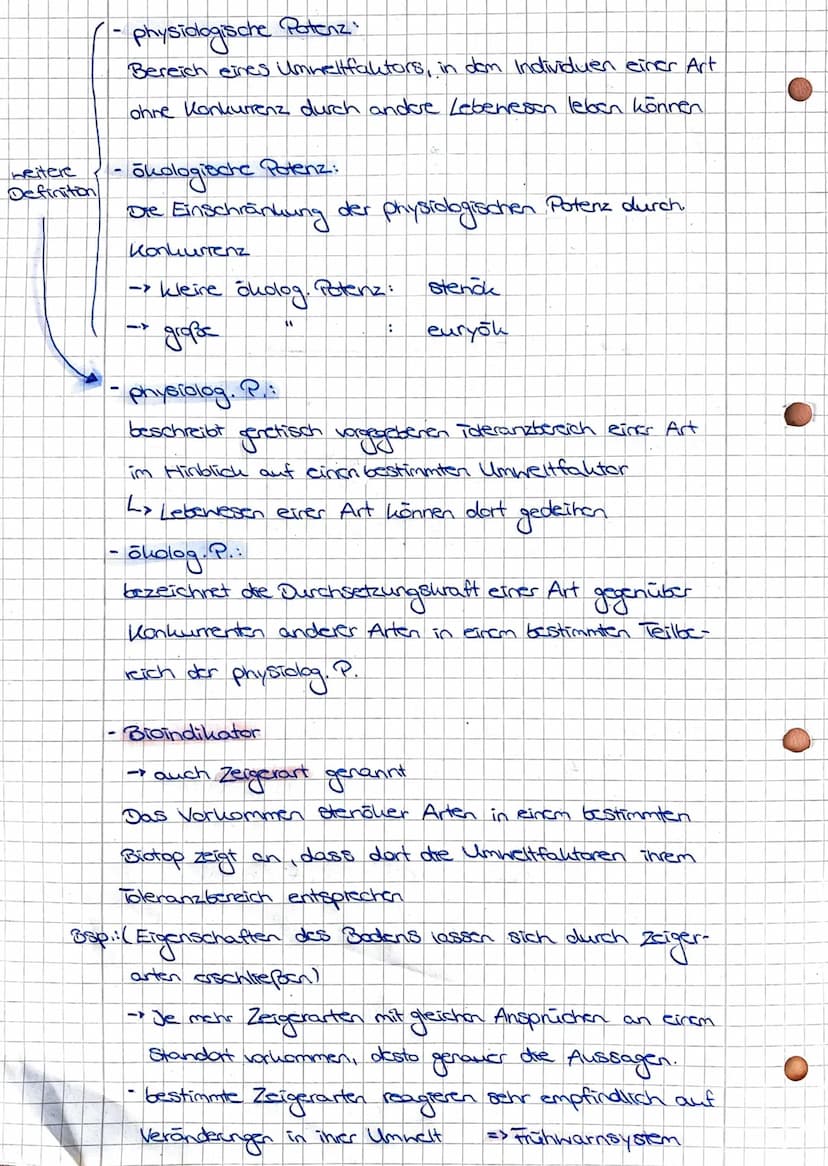 - physiologische Potenz:
Bereich eines Umweltfaktors, in dem Individuen einer Art
ohne Konkurrenz durch andere Lebewesen leben können
weitere
Definition
- ökologische Potenz:
Die Einschränkung der physiologischen Potenz durch
Konkurrenz
-> kleine ökolog. Potenz: stenök
-> große " : euryök
- physiolog. P.:
beschreibt genetisch vorgegebenen Toleranzbereich einer Art
im Hinblick auf einen bestimmten Umweltfaktor
↳ Lebewesen einer Art können dort gedeihen
- ökolog. P.:
bezeichnet die Durchsetzungskraft einer Art gegenüber
Konkurrenten anderer Arten in einem bestimmten Teilbe-
reich der physiolog. P.
- Bioindikator
-> auch Zeigerart genannt
Das Vorkommen stenöker Arten in einem bestimmten
Biotop zeigt an, dass dort die Umweltfaktoren ihrem
Toleranzbereich entsprechen
Bsp.: (Eigenschaften des Bodens lassen sich durch Zeiger-
arten erschließen)
-> Je mehr Zeigerarten mit gleichen Ansprüchen an einem
Standort vorkommen, desto genauer die Aussagen.
- bestimmte Zeigerarten reagieren sehr empfindlich auf
Veränderungen in ihrer Umwelt => Frühwarnsystem